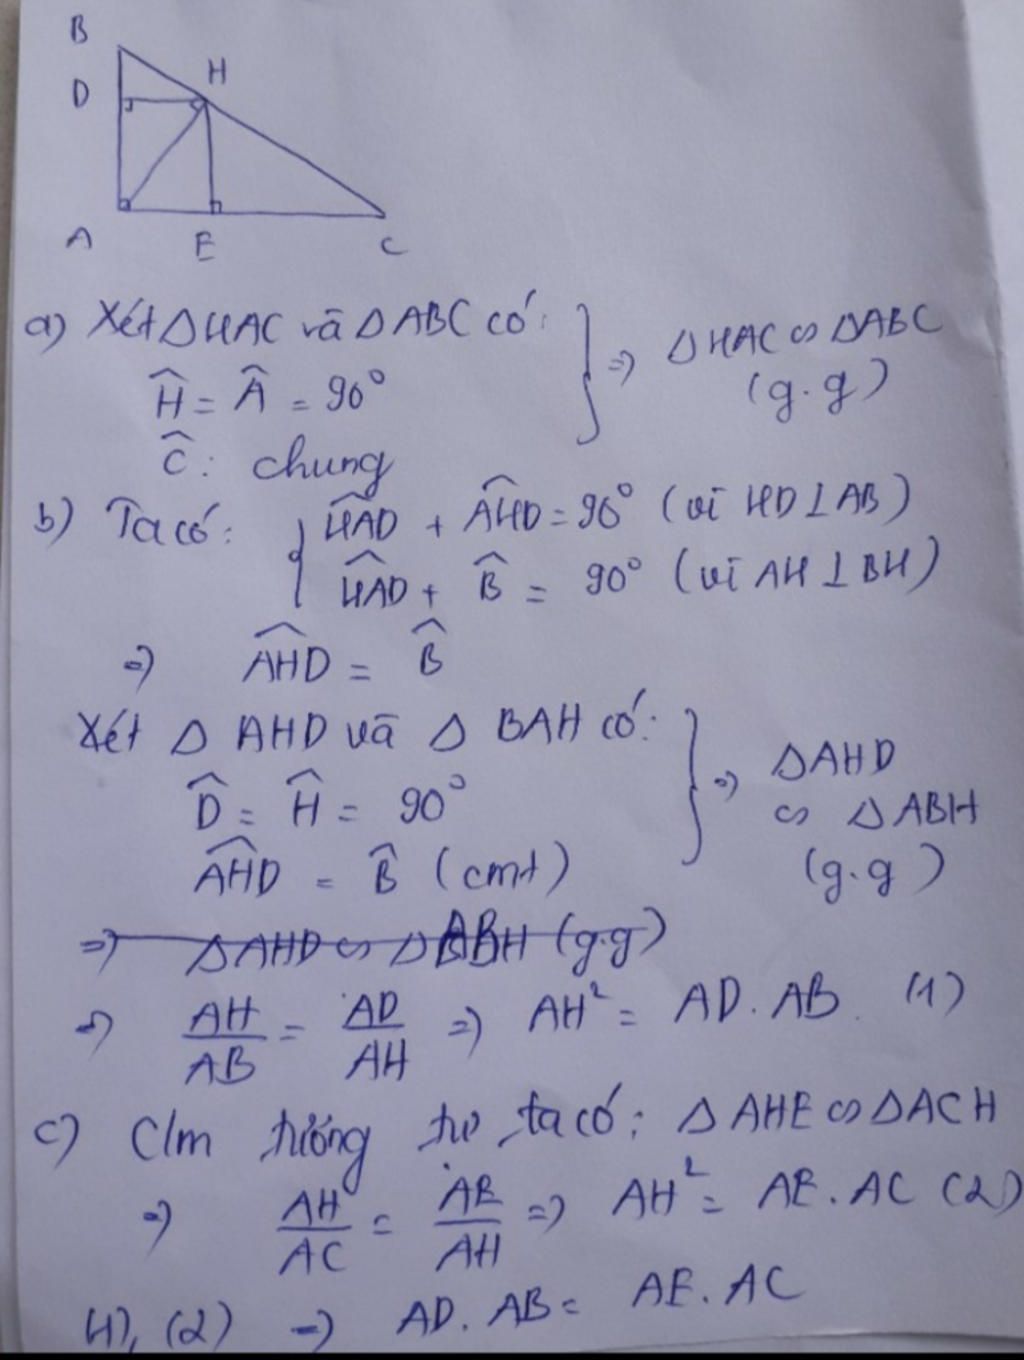 B
H
D
A
E
C
a) Xét ΔHAC và ΔABC có: } => ΔHAC ∽ ΔABC
Ĥ = Â = 90° (g.g)
Ĉ: chung
b) Ta có: { \widehat{HAD} + \widehat{AHD} = 90° (vì HD ⊥ AB)
\widehat{HAD} + B̂ = 90° (vì AH ⊥ BH)
=> \widehat{AHD} = B̂
Xét Δ AHD và Δ BAH có: } => ΔAHD
D̂ = Ĥ = 90° ∽ ΔABH
\widehat{AHD} = B̂ (cmt) (g.g)
=> ΔAHD ∽ ΔABH (g.g)
=> AH/AB = AD/AH => AH² = AD. AB. (1)
c) C/m tương tự ta có: Δ AHE ∽ ΔACH
=> AH/AC = AE/AH => AH² = AE. AC (2)
(1), (2) => AD. AB = AE. AC